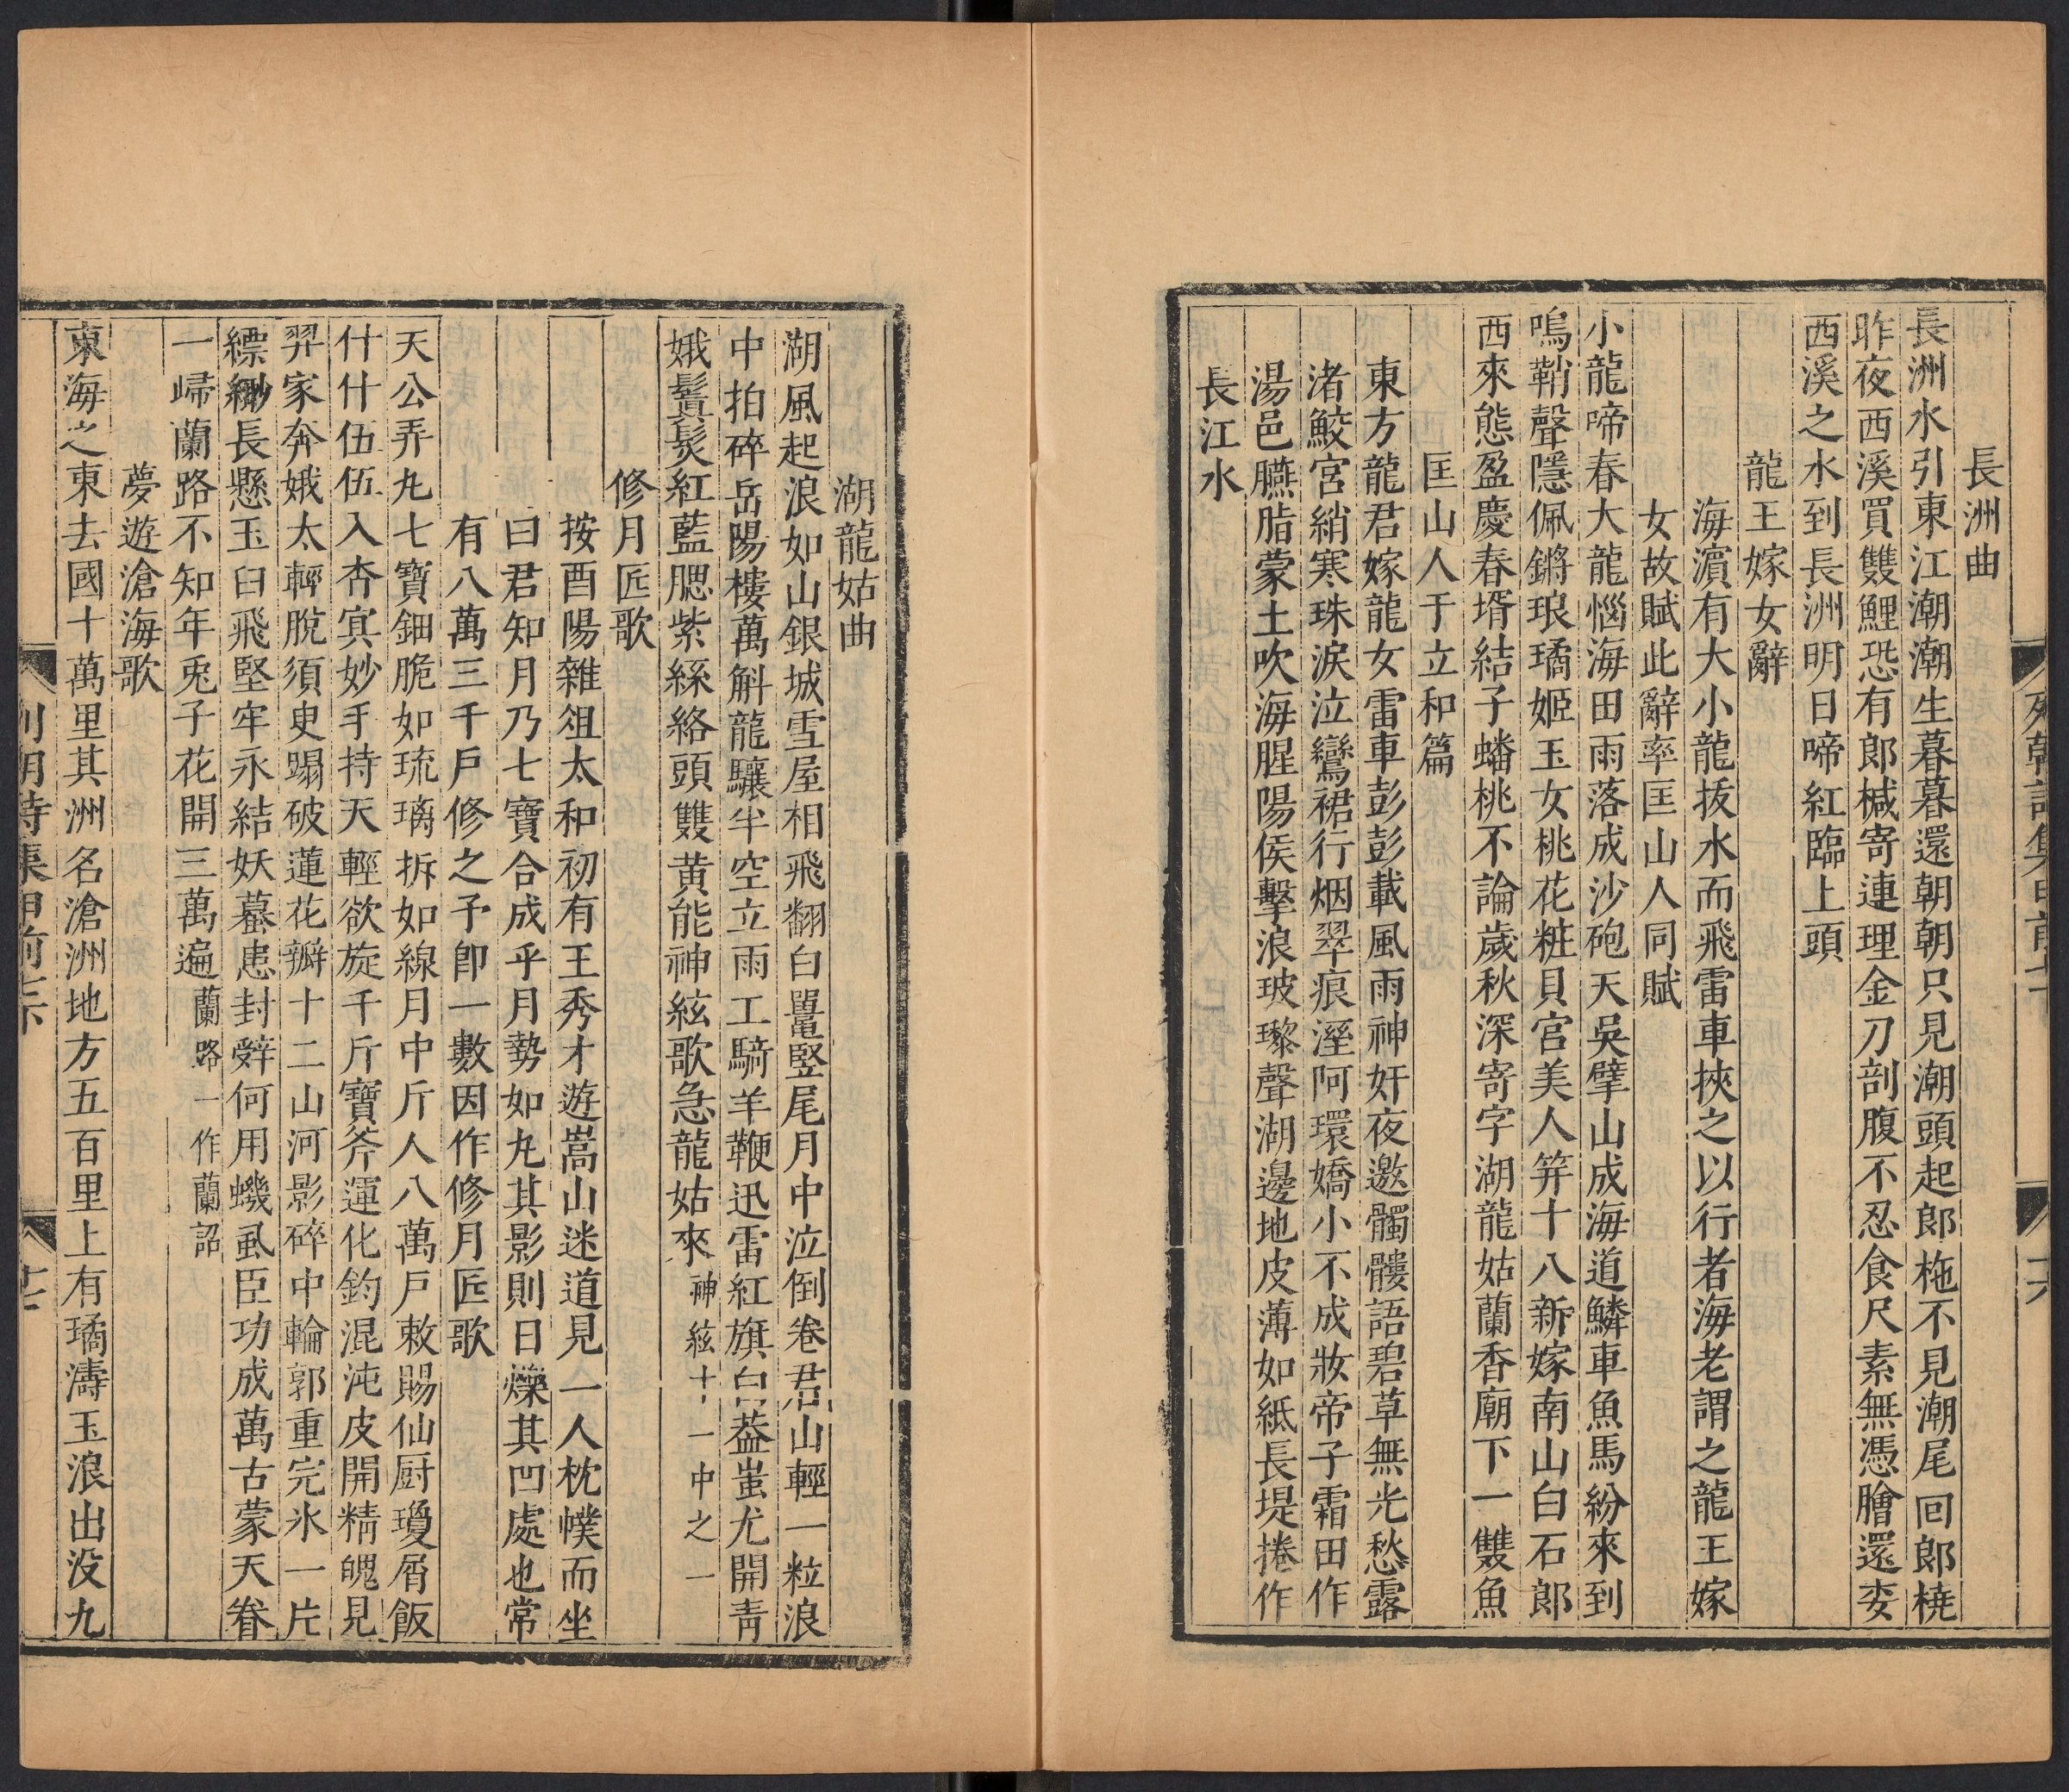 長洲曲
長洲水引東江潮潮生暮暮還朝朝只見潮頭起郎柂不見潮尾回郎橈
昨夜西溪買雙鯉恐有郎械寄連理金刀剖腹不忍食尺素無憑膾還委
西溪之水到長洲明日啼紅臨上頭
龍王嫁女辭
海濵有大小龍拔水而飛雷車挾之以行者海老謂之龍王嫁
女故賦此辭率匡山人同賦
小龍啼春大龍惱海田雨落成沙砲天吳擘山成海道鱗車魚馬紛來到
鳴鞘聲隱佩鏘琅璚姬玉女桃花粧貝宮美人笄十八新嫁南山白石郎
西來態盈慶春壻結子蟠桃不論歲秋深寄字湖龍姑蘭香廟下一雙魚
匡山人于立和篇
東方龍君嫁龍女雷車彭彭載風雨神奸夜邀髑髏語碧草無光愁露
渚鮫宮綃寒珠淚泣鸞裙行烟翠痕溼阿環嬌小不成妝帝子霜田作
湯邑臙脂蒙土吹海腥陽侯擊浪玻瓈聲湖邊地皮薄如紙長堤捲作
長江水
湖龍姑曲
湖風起浪如山銀城雪屋相飛翻白鼉竪尾月中泣倒卷君山輕一粒浪
中拍碎岳陽樓萬斛龍驤半空立雨工騎羊鞭迅雷紅旗白葢蚩尤開靑
娥鬢髮紅藍腮紫絲絡頭雙黄能神絃歌急龍姑來神絃十一中之一
修月匠歌
按酉陽雜俎太和初有王秀才遊嵩山迷道見一人枕幞而坐
曰君知月乃七寶合成乎月勢如丸其影則日爍其凹處也常
有八萬三千戶修之予卽一數因作修月匠歌
天公弄丸七寶鈿脆如琉璃拆如線月中斤人八萬戶敕賜仙厨瓊屑飯
什什伍伍入杳冥妙手持天輕欲旋千斤寶斧運化鈞混沌皮開精魄見
羿家奔娥太輕脫須臾蹋破蓮花瓣十二山河影碎中輪郭重完氷一片
縹緲長懸玉臼飛堅牢永結妖蟇患封辤何用蟣虱臣功成萬古蒙天眷
一歸蘭路不知年兎子花開三萬遍蘭路一作蘭詔
夢遊滄海歌
東海之東去國十萬里其洲名滄洲地方五百里上有璚濤玉浪出没九